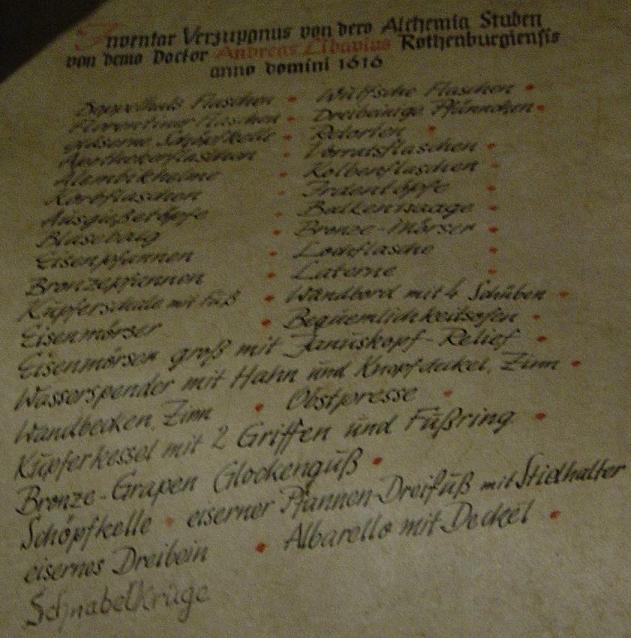 Inventar Verzuponus von dero Alchemia Stuben
von demo Doctor Andreas Libavius Rothenburgiensis
anno domini 1616
Doppelhals Flaschen • Wulfsche Flaschen •
Florentiner Flaschen • Dreibeinige Pfännchen •
gläserne Schöpfkelle • Retorten •
Apothekerflaschen • Vorratsflaschen •
Alembikhelme Kolbenflaschen •
Korbflaschen Irdentöpfe •
Ausgußtöpfe Balkenwaage •
Blasebalg Bronze-Mörser •
Eisenpfannen • Lodeflasche •
Bronzepfannen • Laterne •
Kupferschale mit Fuß • Wandbord mit 4 Schüben •
Eisenmörser • Bequemlichkeitsofen •
Eisenmörser groß mit Januskopf-Relief •
Wasserspender mit Hahn und Knopfdeckel, Zinn •
Wandbecken, Zinn • Obstpresse •
Kupferkessel mit 2 Griffen und Fußring •
Bronze-Grapen Glockenguß •
Schöpfkelle • eiserner Pfannen-Dreifuß mit Stielhalter
eisernes Dreibein • Albarello mit Deckel •
Schnabelkrüge